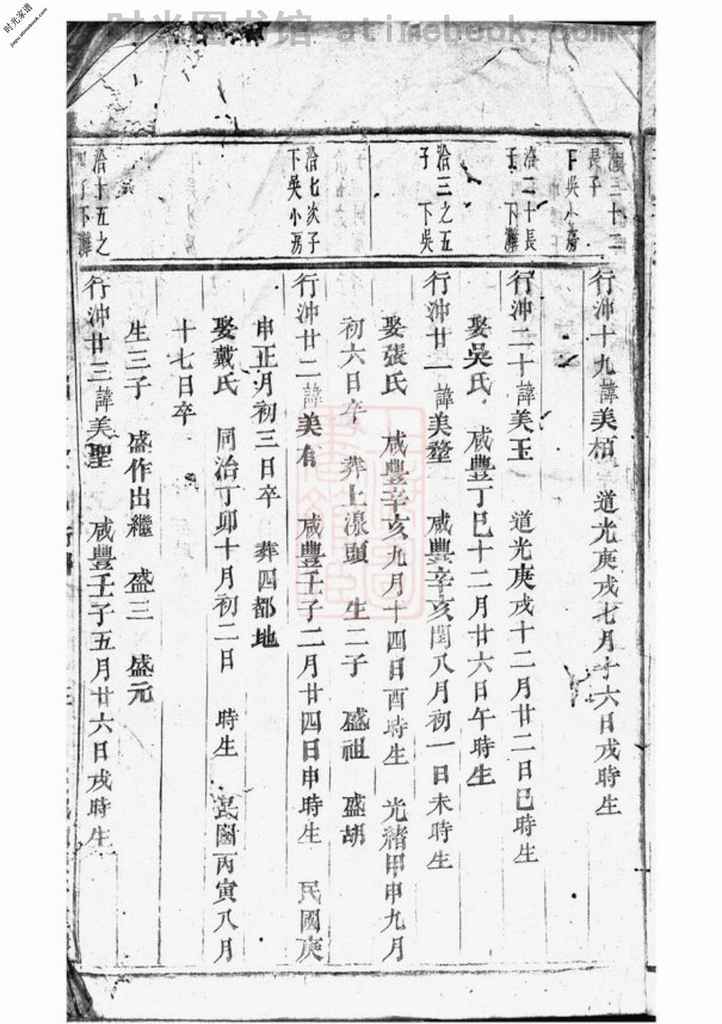 时光图书馆 - atimebook.com
时光家谱
jiapu.atimebook.com
三十二
長子
下吳小房
行沖十九諱美楨 道光庚戌七月十六日戌時生
洽二十長
子 下灘
行沖二十諱美玉 道光庚戌十二月廿二日巳時生
娶吳氏 咸豐丁巳十二月廿六日午時生
洽三之五
子 下吳
行沖廿一諱美鰲 咸豐辛亥閏八月初一日未時生
娶張氏 咸豐辛亥九月十四日酉時生 光緒甲申九月
初六日卒 葬上濠頭 生二子 盛祖 盛胡
洽七次子
下吳小房
行沖廿二諱美有 咸豐壬子二月廿四日申時生 民國庚
申正月初三日卒 葬四都地
娶戴氏 同治丁卯十月初二日 時生 民國丙寅八月
十七日卒
生三子 盛作出繼 盛三 盛元
洽十五之
子下灘
行沖廿三諱美聖 咸豐壬子五月廿六日戌時生